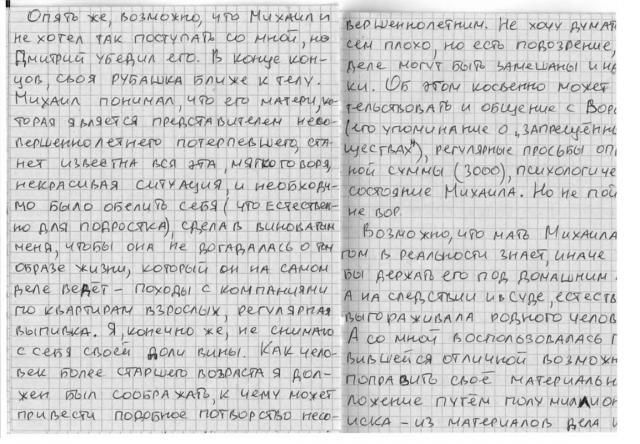 Опять же, возможно, что Михаил и
не хотел так поступать со мной, но
Дмитрий убедил его. В конце кон-
цов, своя рубашка ближе к телу.
Михаил понимал, что его матери, ко-
торая является представителем несо-
вершеннолетнего потерпевшего, ста-
нет известна вся эта, мягко говоря,
некрасивая ситуация, и необходи-
мо было обелить себя (что естествен-
но для подростка), сделав виноватым
меня, чтобы она не догадалась о том
образе жизни, который он на самом
деле ведет – походы с компаниями
по квартирам взрослых, регулярная
выпивка. Я, конечно же, не снимаю
с себя своей доли вины. Как чело-
век более старшего возраста я дол-
жен был соображать, к чему может
привести подобное потворство несо-
вершеннолетним. Не хочу думат
сём плохо, но есть подозрение,
деле могут быть замешаны и на
ки. Об этом косвенно может
тельствовать и общение с Вор
(его упоминание о „запрещённы
ществах"), регулярные просьбы оп
ной суммы (3000), психологиче
состояние Михаила. Но не пой
не вор.
Возможно, что мать Михаила
том в реальности знает, иначе
бы держать его под домашним
А на следствии и в суде, естеств
выгораживала родного челов
А со мной воспользовалась п
вившейся отличной возможн
поправить своё материальн
ложение путём полумиллион
иска – из материалов дела и